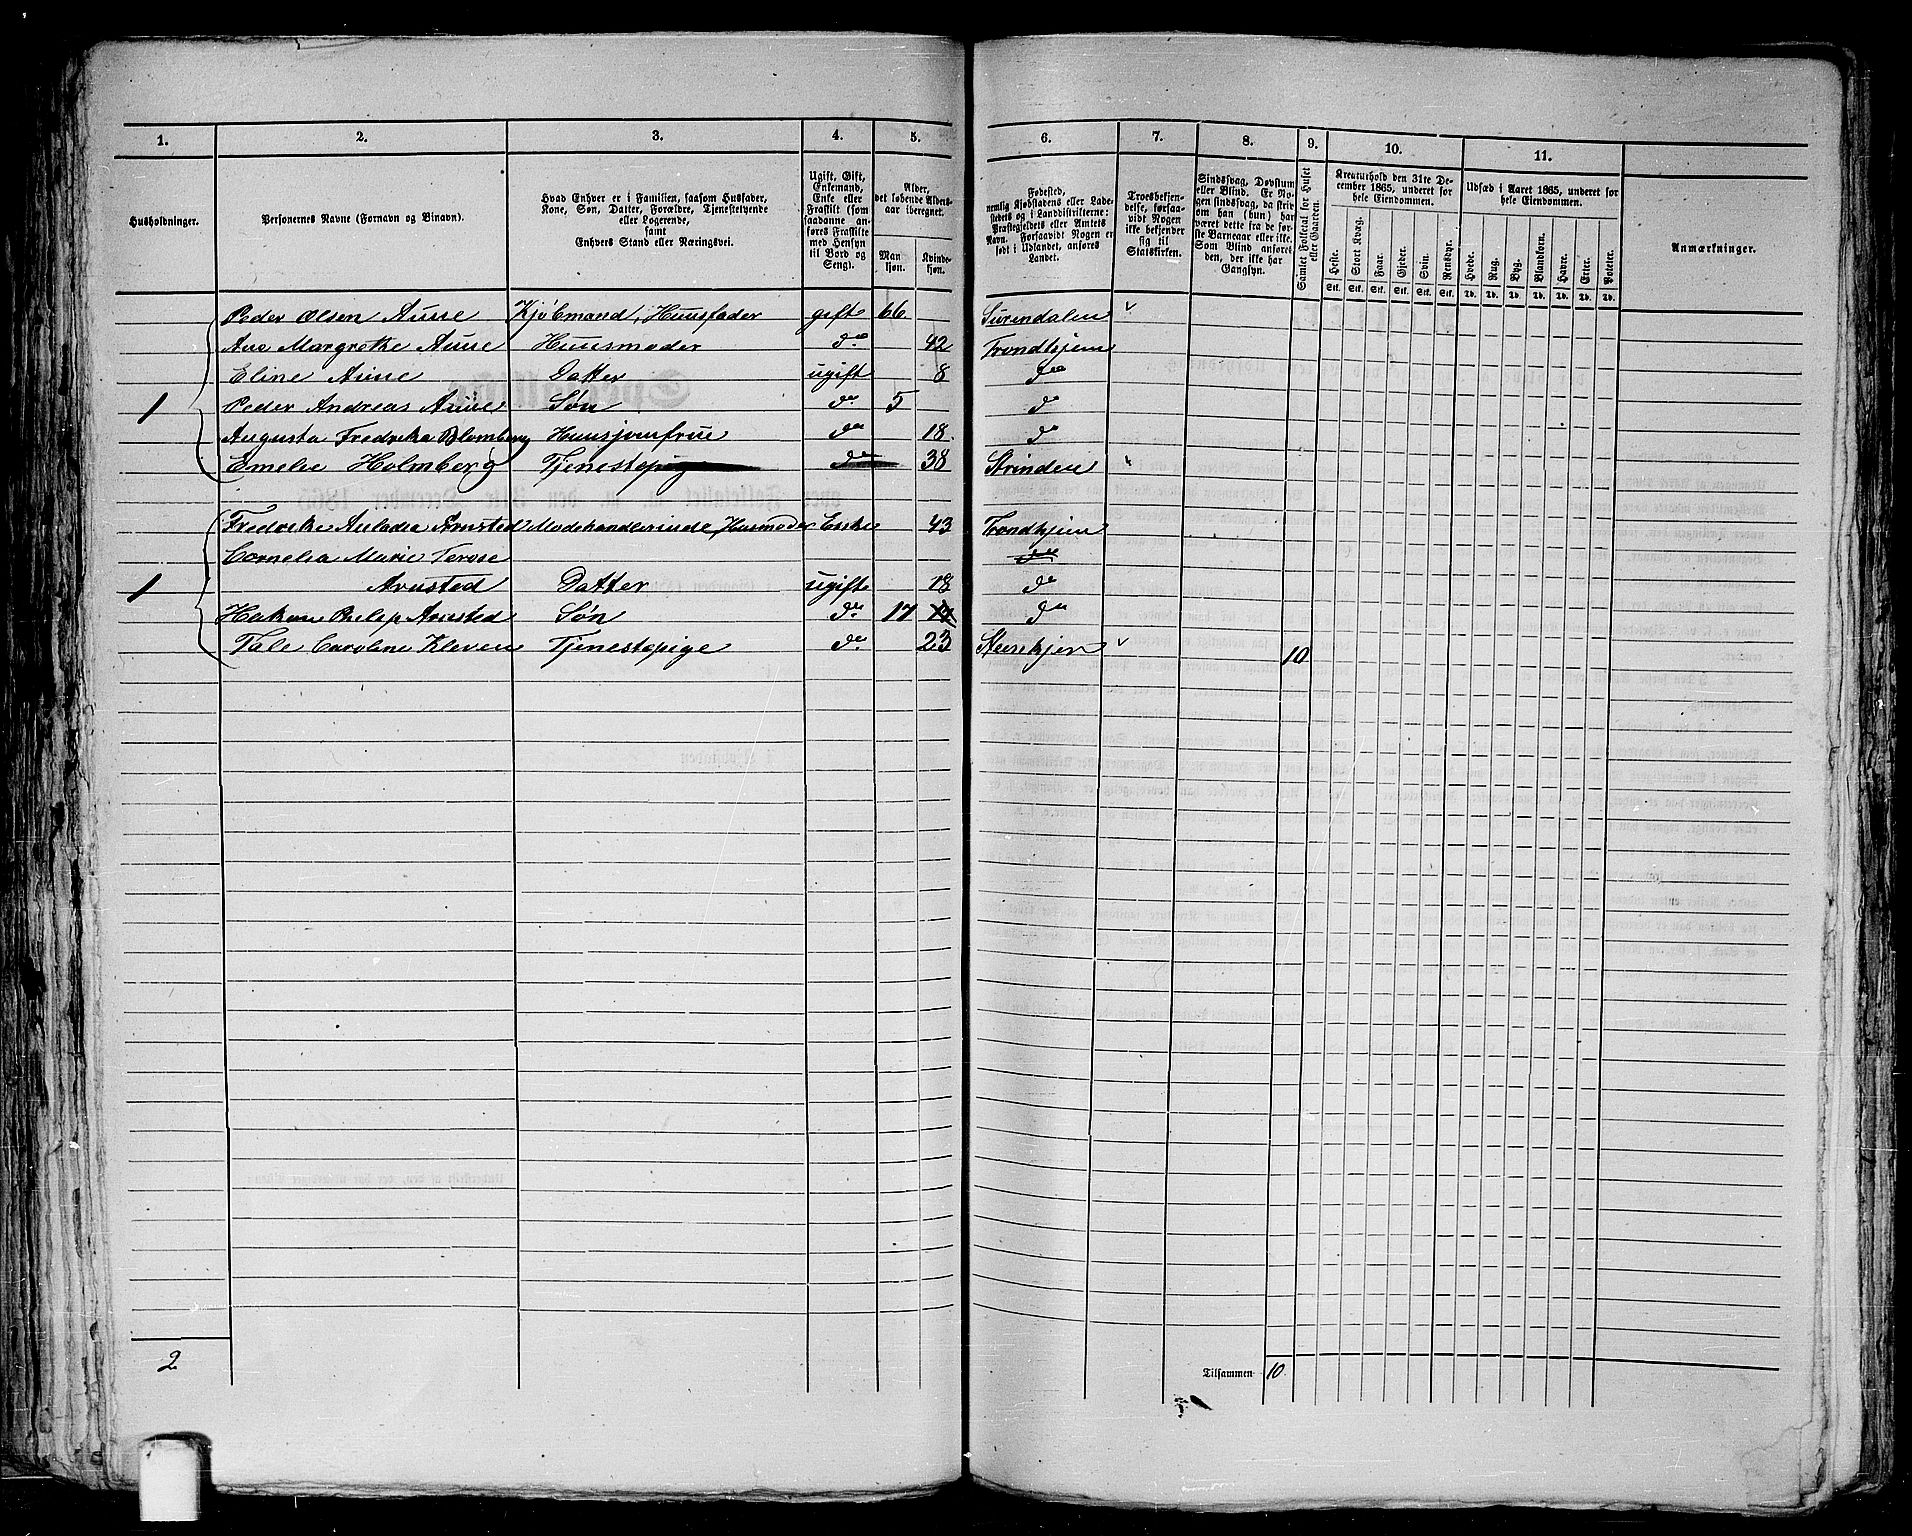 1. 2. 3. 4. 5. 6. 7. 8. 9. 10. 11.
Husholdninger.
Personernes Navne (Fornavn og Binavn).
Hvad Enhver er i Familien, saasom Husfader,
Kone, Søn, Datter, Forældre, Tjenestetyende
eller Logerende,
samt
Enhvers Stand eller Næringsvei.
Ugift, Gift,
Enkemand,
Enke eller
Fraskilt (som
saadanne an-
føres Fraskilte
med Hensyn
til Bord og
Seng).
Alder,
det løbende Alders-
aar iberegnet.
Man-
kjøn.
Kvinde-
kjøn.
Fødested,
nemlig Kjøbstadens eller Lade-
stedets og i Landdistrikterne:
Præstegjeldets eller Amtets
Navn. Forsaavidt Nogen er
født i Udlandet, anføres
Landet.
Troesbekjen-
delse, forsaa-
vidt Nogen
ikke bekjender
sig til
Statskirken.
Sindssvag, Døvstum
eller Blind. Er No-
gen sindssvag, da skriv
om han (hun) har
været dette fra de før-
ste Barneaar eller ikke.
Som Blind anføres
den, der ikke har
Gangsyn.
Samlet Folketal for Huset
eller Gaarden.
Kreaturhold den 31te De-
cember 1865, underet for
hele Eiendommen.
Heste. Stort Kvæg. Faar. Gjeder. Svin. Rensdyr.
Stk. Stk. Stk. Stk. Stk. Stk.
Udsæd i Aaret 1865, underet for
hele Eiendommen.
Hvede. Rug. Byg. Blandkorn. Havre. Erter. Poteter.
Td. Td. Td. Td. Td. Td. Td.
Anmærkninger.
Peder Olsen Aune Kjöbmand, Huusfader gift 66 Surendalen
Ane Margrethe Aune Huusmoder do 42 Trondhjem
Eline Aune Datter ugift 8 do
1 Peder Andreas Aune Søn do 5 do
Augusta Fredrika Blomberg Huusjomfrue do 18 do
Emelie Holmberg Tjenestepige do 38 Strinden
Fredrikke Arnsted Modehandlerinde, Husmoder Enke 43 Trondhjem
Cornelia Marie Terese do
1 Arnsted Datter ugift 18 do
Hakon Philip Arnsted Søn do 17 do
Tale Caroline Kleven Tjenestepige do 23 Steenkjer 10
2
Tilsammen 10